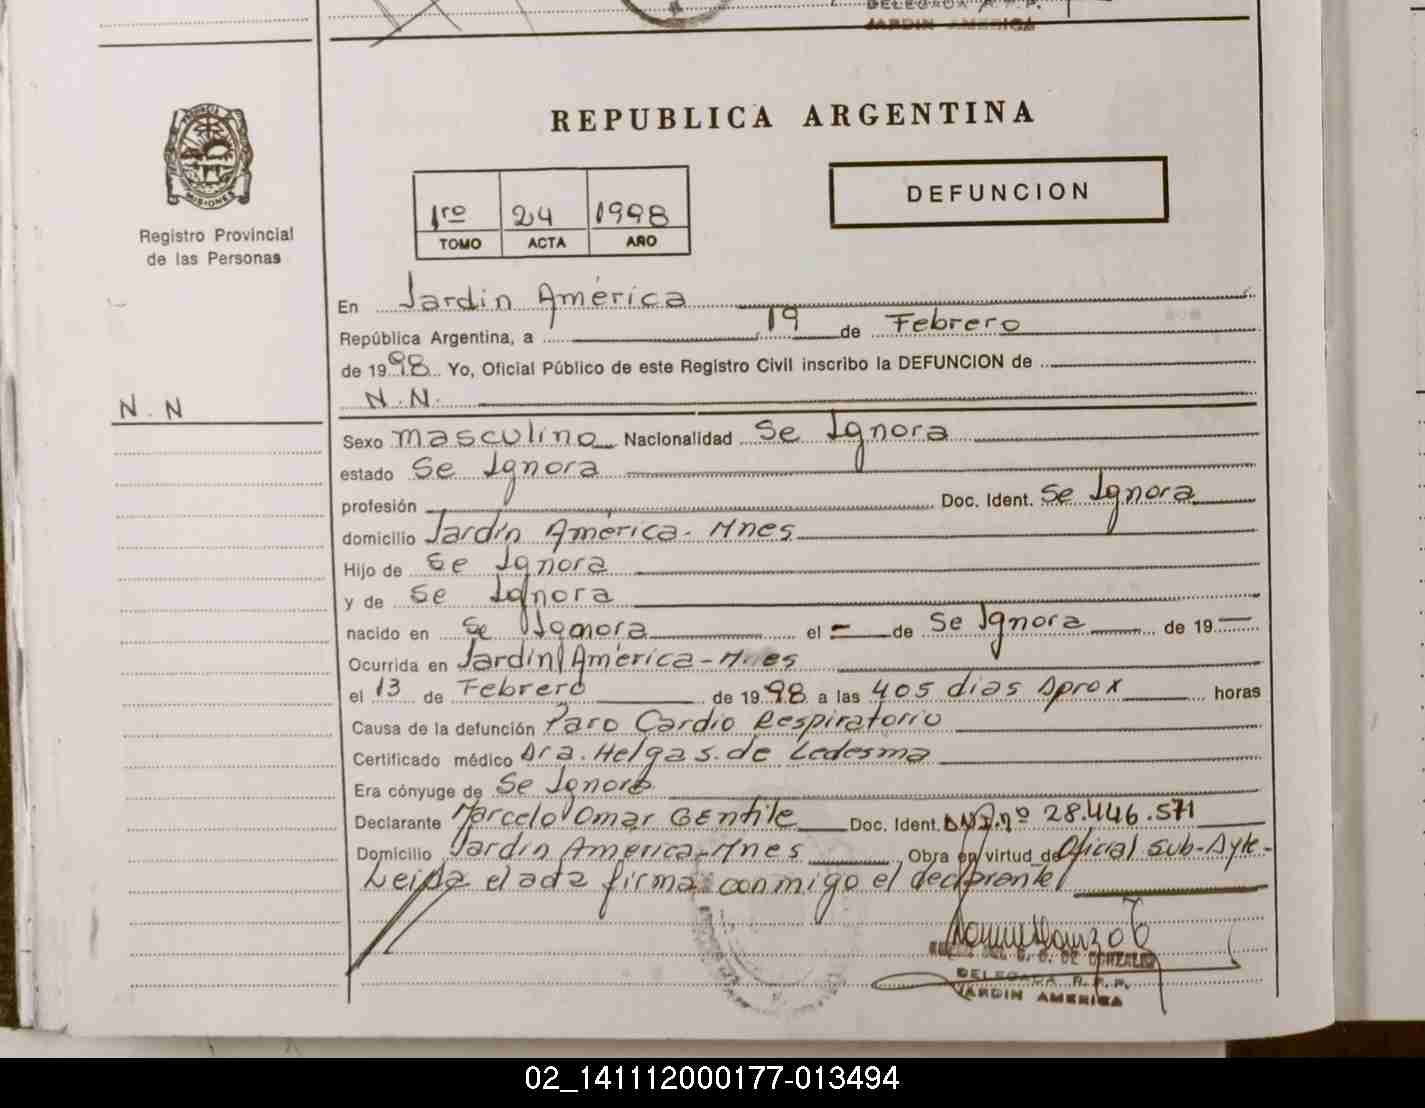 DELEGADA R.P.P.
JARDIN AMERICA
PROVINCIA
MISIONES
Registro Provincial
de las Personas
REPUBLICA ARGENTINA
1ro 24 1998
TOMO ACTA AÑO
DEFUNCION
En Jardin América
República Argentina, a 19 de Febrero
de 1998. Yo, Oficial Público de este Registro Civil inscribo la DEFUNCION de
N.N.
N.N
Sexo masculino Nacionalidad Se Ignora
estado Se Ignora
profesión Doc. Ident. Se Ignora
domicilio Jardín América - Mnes
Hijo de Se Ignora
y de Se Ignora
nacido en Se Ignora el - de Se Ignora de 19 —
Ocurrida en Jardin América - Mnes
el 13 de Febrero de 1998 a las 405 dias Aprox horas
Causa de la defunción Paro Cardio Respiratorio
Certificado médico Dra. Helga S. de Ledesma
Era cónyuge de Se Ignora
Declarante Marcelo Omar GENtile Doc. Ident. D.N.I. nº 28.446.571
Domicilio Jardin América - Mnes Obra en virtud de Oficial Sub-Ayte-
Leida el acta firma conmigo el declarante
DE GONZALEZ
DELEGADA R.P.P.
JARDIN AMERICA
02_141112000177-013494